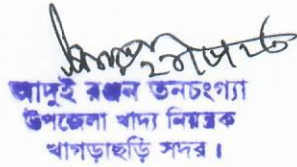 আদুই রঞ্জন তনচংগ্যা
উপজেলা খাদ্য নিয়ন্ত্রক
খাগড়াছড়ি সদর।